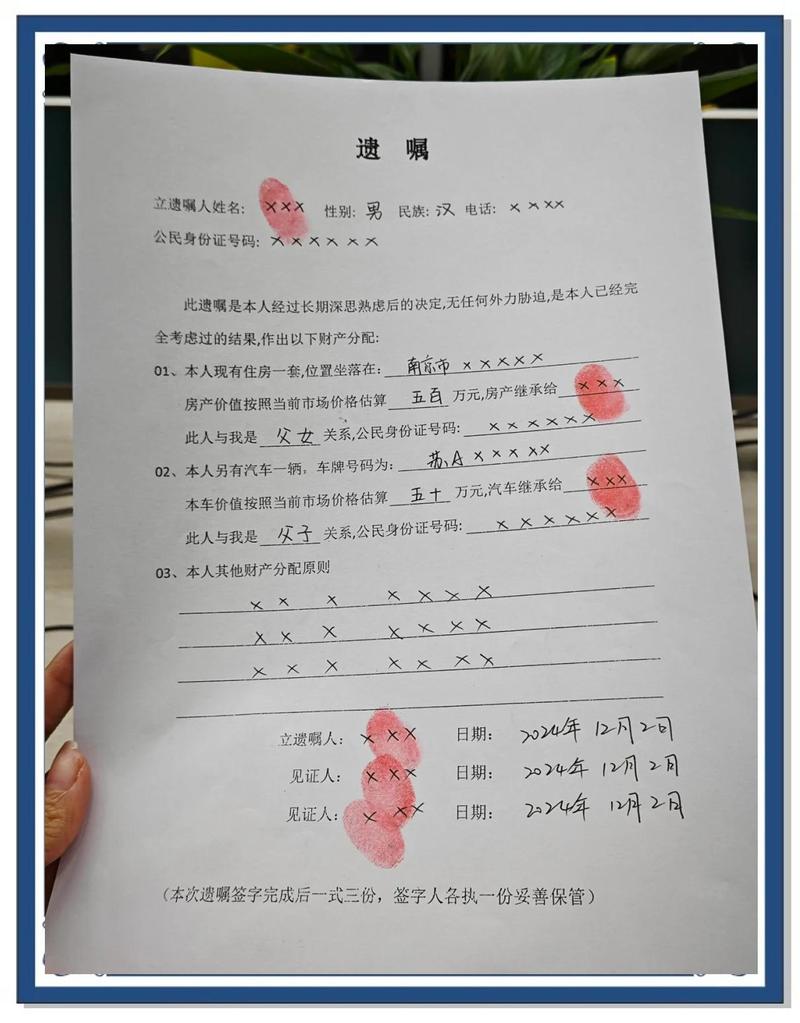 遗 嘱
立遗嘱人姓名: ××× 性别: 男 民族: 汉 电话: ××××
公民身份证号码: ××××××
此遗嘱是本人经过长期深思熟虑后的决定,无任何外力胁迫,是本人已经完
全考虑过的结果,作出以下财产分配:
01、本人现有住房一套,位置坐落在: 南京市 ×××××
房产价值按照当前市场价格估算 五百 万元,房产继承给 ×××
此人与我是 父女 关系,公民身份证号码: ××××××
02、本人另有汽车一辆。车牌号码为: 苏A ×××××
本车价值按照当前市场价格估算 五十 万元,汽车继承给 ×××
此人与我是 父子 关系,公民身份证号码: ××××××
03、本人其他财产分配原则
×× × ××××
×× × ××××
×× × ×× ××
立遗嘱人: ××× 日期: 2024年 12月2日
见证人: ××× 日期: 2024年 12月2日
见证人: ××× 日期: 2024年 12月2日
（本次遗嘱签字完成后一式三份，签字人各执一份妥善保管）